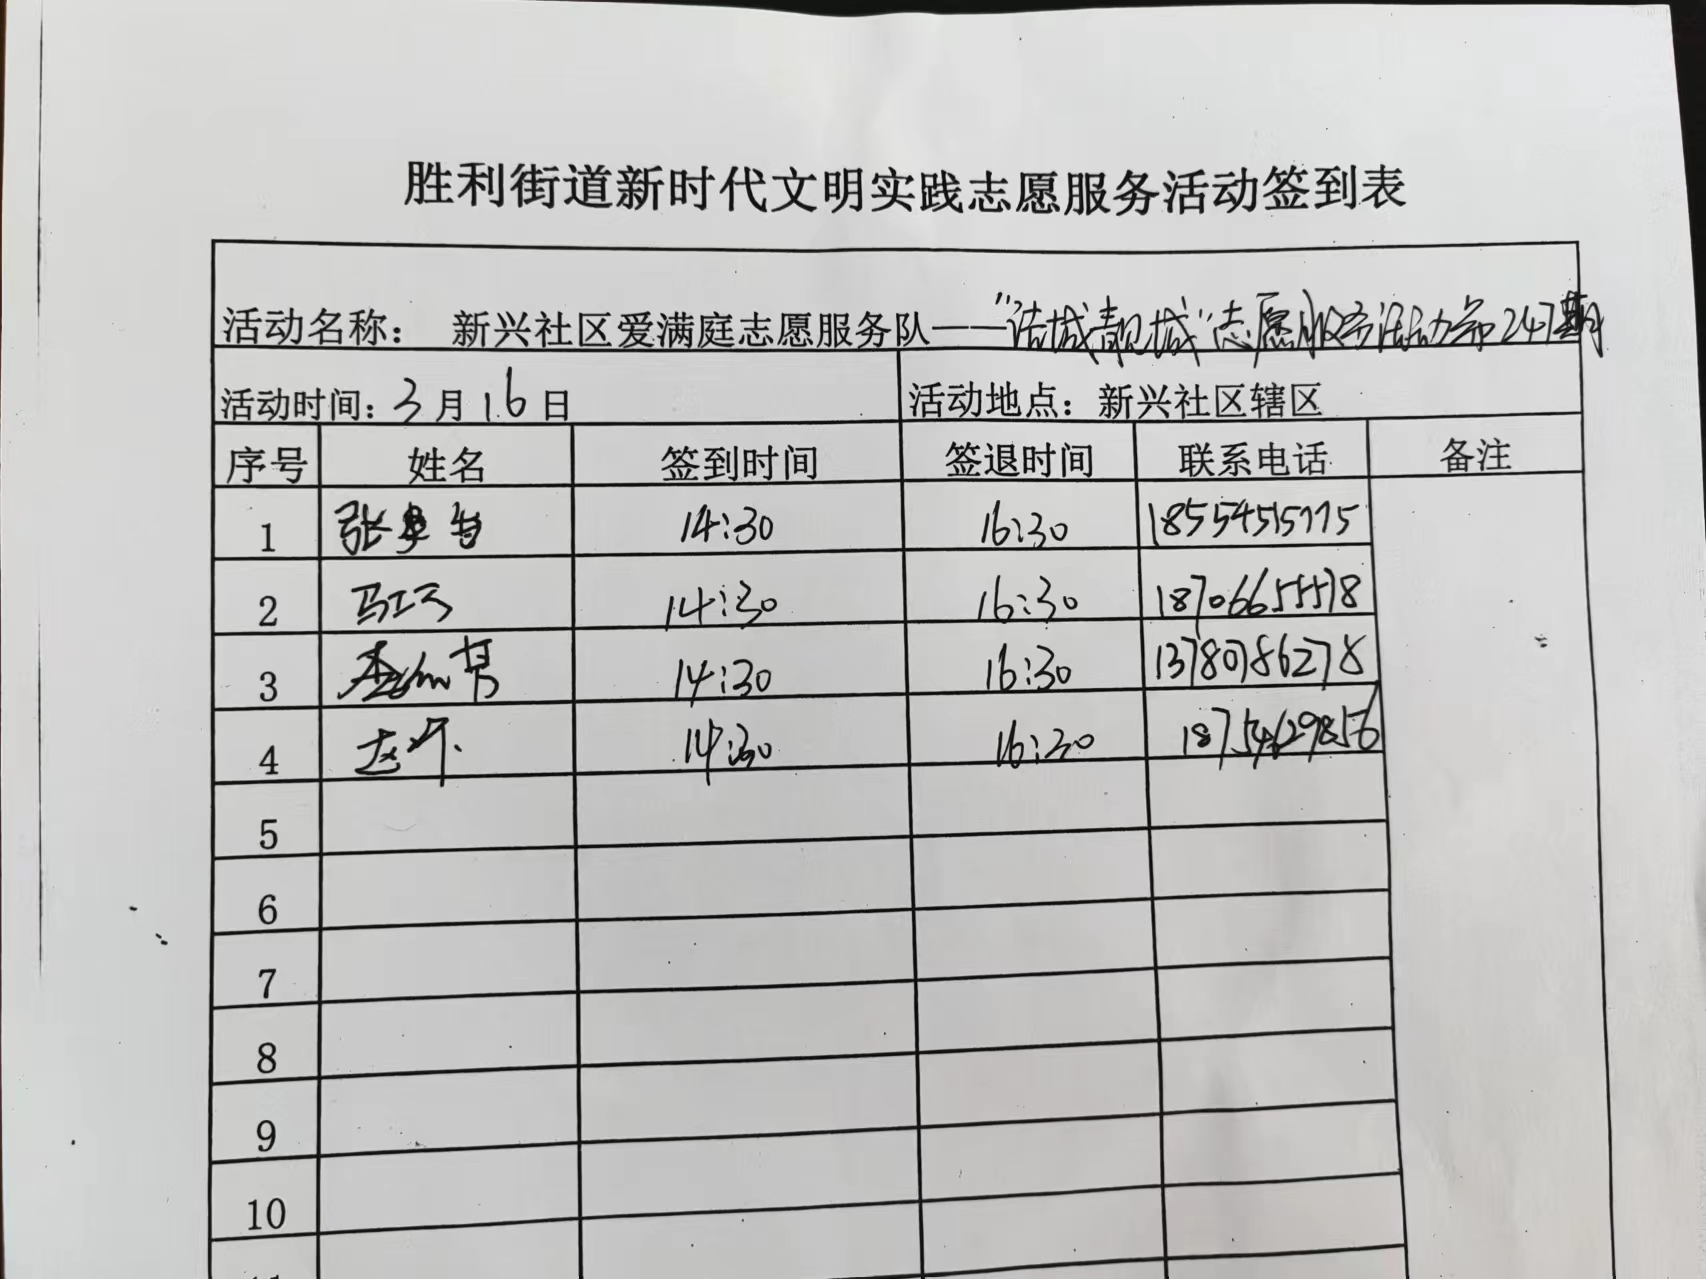 胜利街道新时代文明实践志愿服务活动签到表
活动名称： 新兴社区爱满庭志愿服务队——“洁城靓城”志愿服务活动第247期
活动时间：3月16日 活动地点：新兴社区辖区
序号 姓名 签到时间 签退时间 联系电话 备注
1 张 14:30 16:30
2 马 14:30 16:30 18706655578
3 14:30 16:30 13780786278
4 赵 14:30 16:30 18754629856
5
6
7
8
9
10